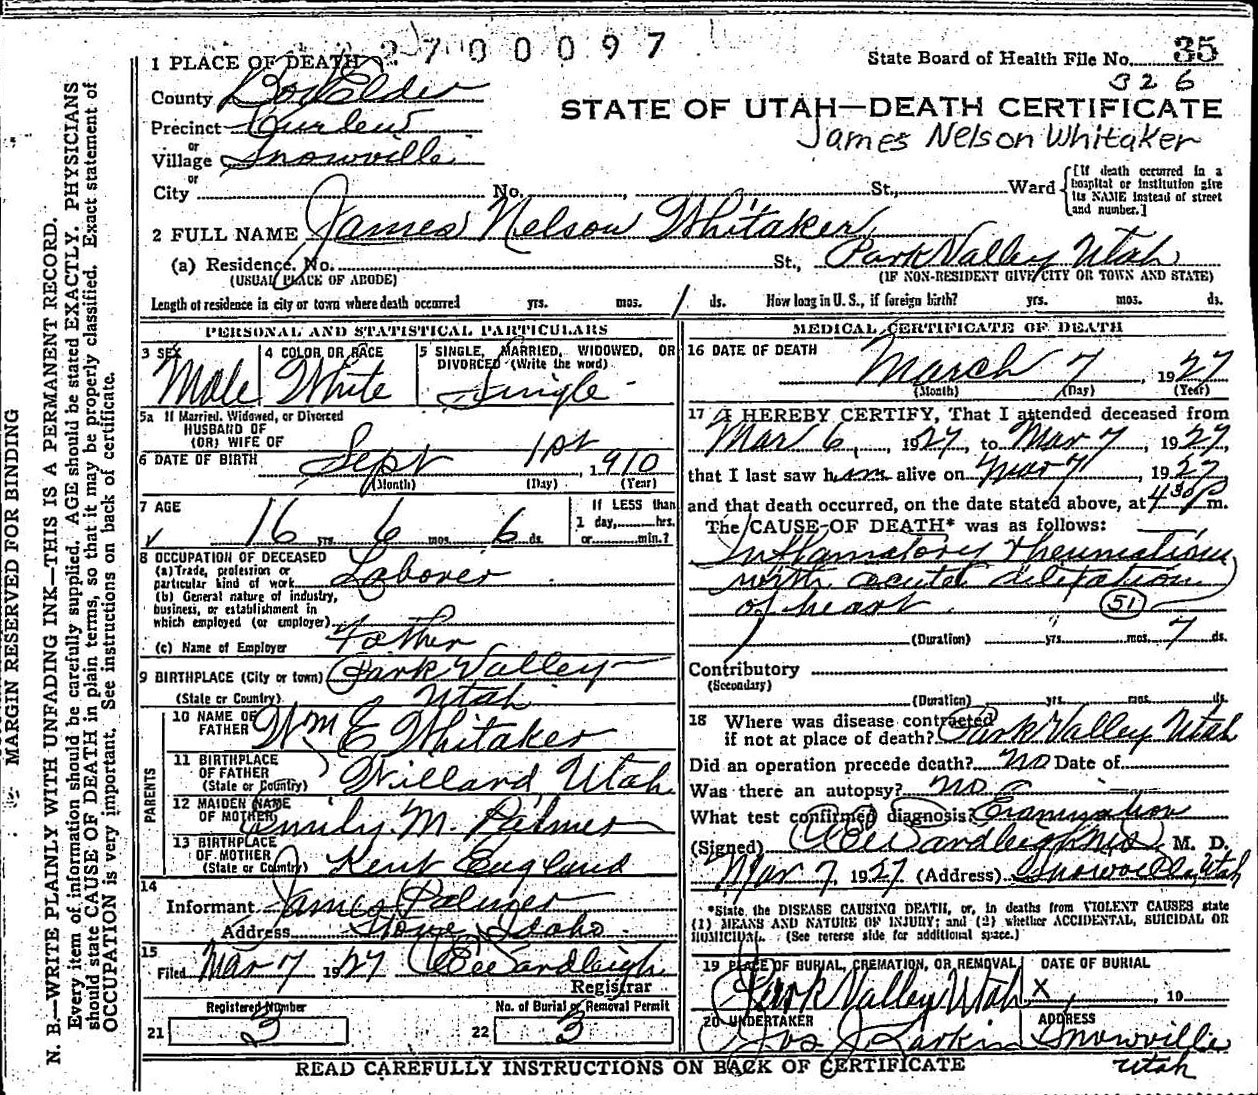 2700097
1 PLACE OF DEATH
State Board of Health File No. 35
326
County Box Elder
STATE OF UTAH—DEATH CERTIFICATE
Precinct Curlew
James Nelson Whitaker
or
Village Snowville
or
City No. St., Ward
[If death occurred in a
hospital or institution give
its NAME instead of street
and number.]
2 FULL NAME James Nelson Whitaker
(a) Residence. No. St., Park Valley Utah
(USUAL PLACE OF ABODE) (IF NON-RESIDENT GIVE CITY OR TOWN AND STATE)
Length of residence in city or town where death occurred yrs. mos. 1 ds. How long in U. S., if foreign birth? yrs. mos. ds.
PERSONAL AND STATISTICAL PARTICULARS
3 SEX Male
4 COLOR OR RACE White
5 SINGLE, MARRIED, WIDOWED, OR
DIVORCED (Write the word)
Single
5a If Married, Widowed, or Divorced
HUSBAND OF
(OR) WIFE OF
6 DATE OF BIRTH Sept 1st, 1910
(Month) (Day) (Year)
7 AGE 16 yrs. 6 mos. 6 ds.
If LESS than
1 day, hrs.
or min.?
8 OCCUPATION OF DECEASED
(a) Trade, profession or
particular kind of work Laborer
(b) General nature of industry,
business, or establishment in
which employed (or employer)
(c) Name of Employer Father
9 BIRTHPLACE (City or town) Park Valley
(State or Country) Utah
PARENTS
10 NAME OF
FATHER Wm E Whitaker
11 BIRTHPLACE
OF FATHER
(State or Country) Willard Utah
12 MAIDEN NAME
OF MOTHER Emily M. Palmer
13 BIRTHPLACE
OF MOTHER
(State or Country) Kent England
14
Informant James Palmer
Address Howe, Idaho
15
Filed Mar 7 1927
Registrar
Registered Number
21 3
No. of Burial or Removal Permit
22 3
MEDICAL CERTIFICATE OF DEATH
16 DATE OF DEATH
March 7, 1927
(Month) (Day) (Year)
17 I HEREBY CERTIFY, That I attended deceased from
Mar 6, 1927, to Mar 7 1927,
that I last saw him alive on Mar 7, 1927
and that death occurred, on the date stated above, at 430 P m.
The CAUSE OF DEATH* was as follows:
Inflamatory rheumatism
with acute dilatation
of heart 51
(Duration) yrs. mos. 7 ds.
Contributory
(Secondary)
(Duration) yrs. mos. ds.
18 Where was disease contracted
if not at place of death? Park Valley Utah
Did an operation precede death? no Date of
Was there an autopsy? no
What test confirmed diagnosis? Examination
(Signed) M. D.
Mar 7, 1927 (Address) Snowville, Utah
*State the DISEASE CAUSING DEATH, or, in deaths from VIOLENT CAUSES state
(1) MEANS AND NATURE OF INJURY; and (2) whether ACCIDENTAL, SUICIDAL OR
HOMICIDAL. (See reverse side for additional space.)
19 PLACE OF BURIAL, CREMATION, OR REMOVAL
Park Valley Utah
DATE OF BURIAL
X , 19
20 UNDERTAKER
Jos J Larkin
ADDRESS
Snowville
Utah
READ CAREFULLY INSTRUCTIONS ON BACK OF CERTIFICATE
MARGIN RESERVED FOR BINDING
N. B.—WRITE PLAINLY WITH UNFADING INK—THIS IS A PERMANENT RECORD.
Every item of information should be carefully supplied. AGE should be stated EXACTLY. PHYSICIANS
should state CAUSE OF DEATH in plain terms, so that it may be properly classified. Exact statement of
OCCUPATION is very important. See instructions on back of certificate.